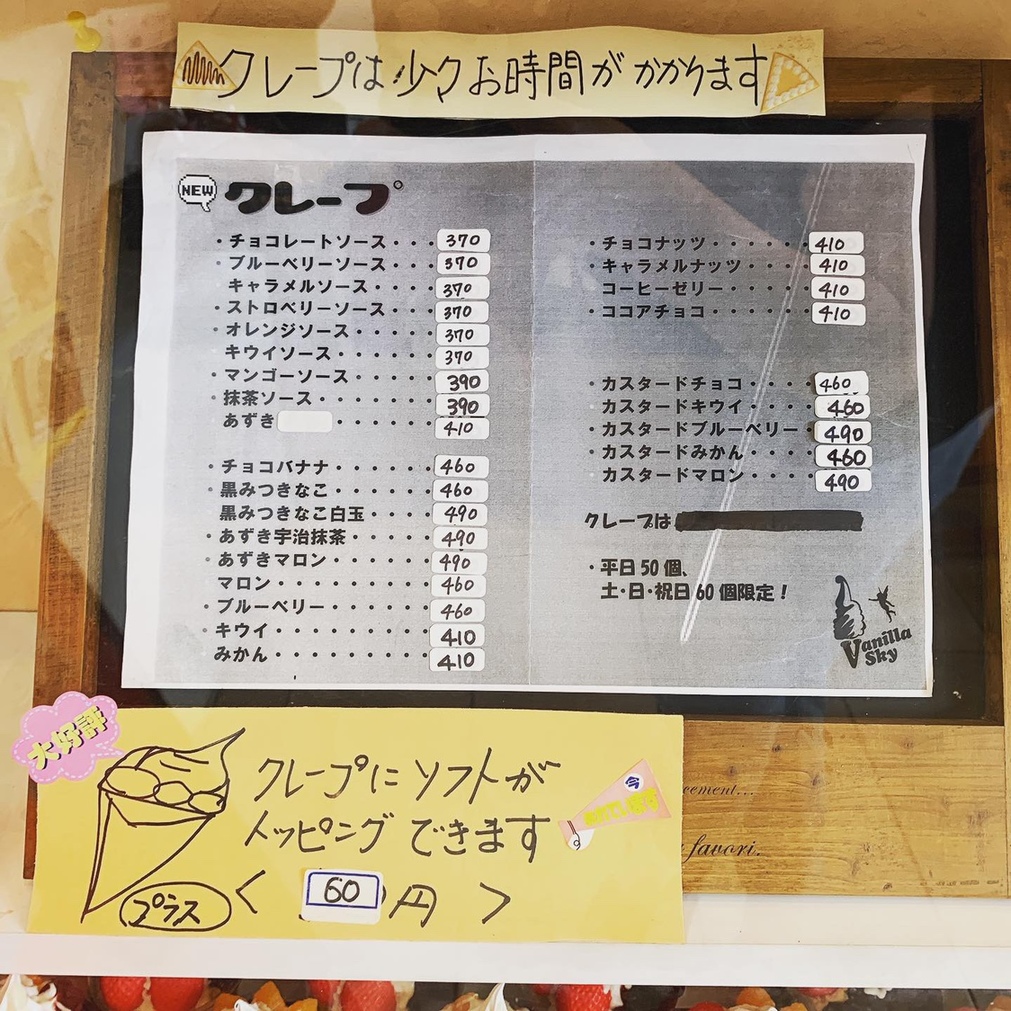 クレープは少々お時間がかかります
NEW クレープ
・チョコレートソース・・・370
・ブルーベリーソース・・・370
キャラメルソース・・・・370
・ストロベリーソース・・・370
・オレンジソース・・・・・370
キウイソース・・・・・・370
・マンゴーソース・・・・・390
・抹茶ソース・・・・・・・390
あずき・・・・・・410
・チョコバナナ・・・・・・460
・黒みつきなこ・・・・・・460
黒みつきなこ白玉・・・・490
・あずき宇治抹茶・・・・・490
・あずきマロン・・・・・・490
マロン・・・・・・・・・460
・ブルーベリー・・・・・・460
・キウイ・・・・・・・・・410
みかん・・・・・・・・・410
・チョコナッツ・・・・・・410
・キャラメルナッツ・・・・410
コーヒーゼリー・・・・・410
・ココアチョコ・・・・・・410
・カスタードチョコ・・・・460
・カスタードキウイ・・・・460
・カスタードブルーベリー・490
・カスタードみかん・・・・460
・カスタードマロン・・・・490
クレープは
・平日50個、
土・日・祝日60個限定！
Vanilla
Sky
大好評
クレープにソフトが
トッピングできます
プラス〈60円〉
今
cement...
favori.